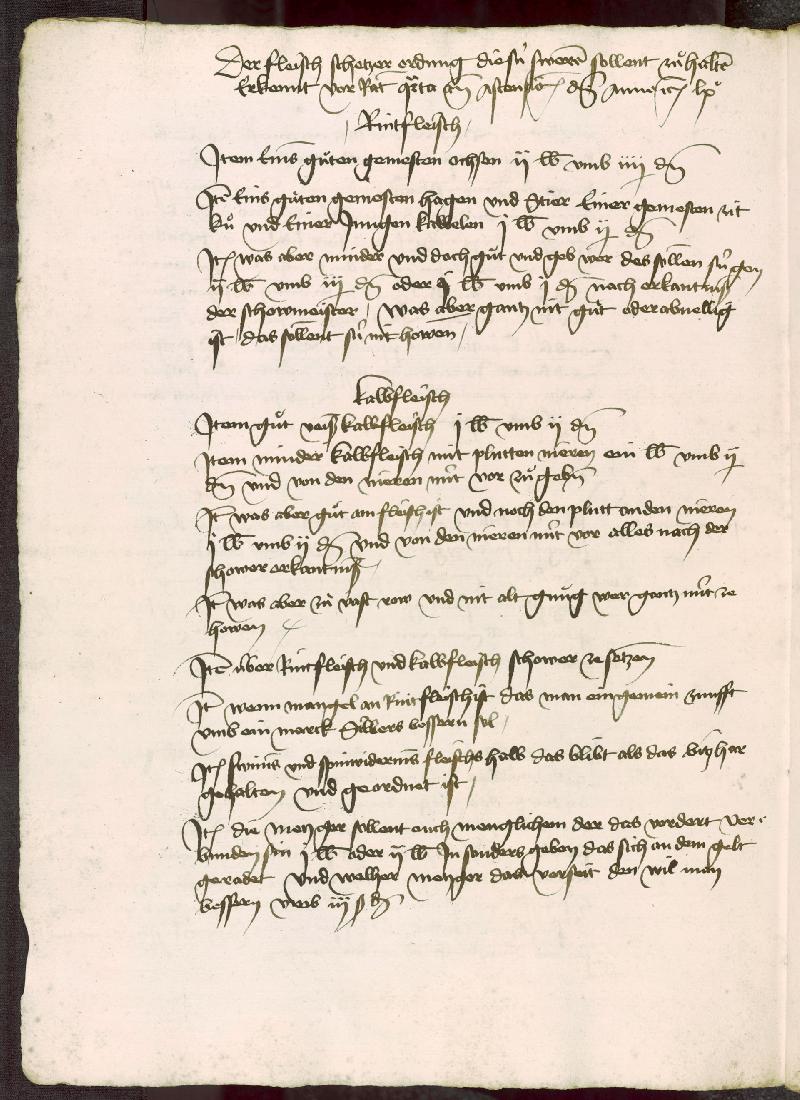 Der fleisch schetzer ordnung die sú sweren sollent zů halten
Erkennt vor Rat qrta añ ascensioͤ dñi anno ꝛc lxͦ
Rintfleisch
Item Eins gůten gemesten ochsen ij lb vmb iiij dn̄
Itē Eins gůten gemesten hagen vnd Stier Einer gemesten zit
ků vnd Einer Jungen kalbelen j lb vmb ij dn̄
Itē was aber minder vnd doch gůt vnd geb wer des sollen sú gen
ij lb vmb iij dn̄ oder j lb vmb j dn̄ nach erkantnis
der schowmeister, was aber gantz nit gůt oder abuellig
ist das sollent sú nit howen
kalbfleisch
Item gůt veiß kalbfleisch j lb vmb ij dn̄
Item minder kalbfleisch mit plutten nieren ein lb vmb ij
dn̄ vnd von den nieren nit vor zů geben
Itē was aber gůt am fleisch ist vnd noch den plutt an den nieren
j lb vmb ij dn̄ vnd von den nieren nit vor alles nach der
schower erkantniß
Itē was aber zů vast row vnd nit alt gnůg wer gantz nit ze
howen
Itē úber Rintfleisch vnd kalbfleisch schower ze setzen
Itē wenn mangel an Rintfleisch ist das man ein gemein zunfft
vmb ein marck Silbers bessern sol
Itē swinis vnd spinwidernis fleischs halb das blibt als das bitzhar
gehalten vnd geordnet ist
Itē die metzger sollent ouch menglichem der das vordert ver
bunden sin j lb oder ij lb In sonders geben das sich an dem gelt
geradet vnd welher metzger das verseit den wil man
bessern vmb iij ß dn̄